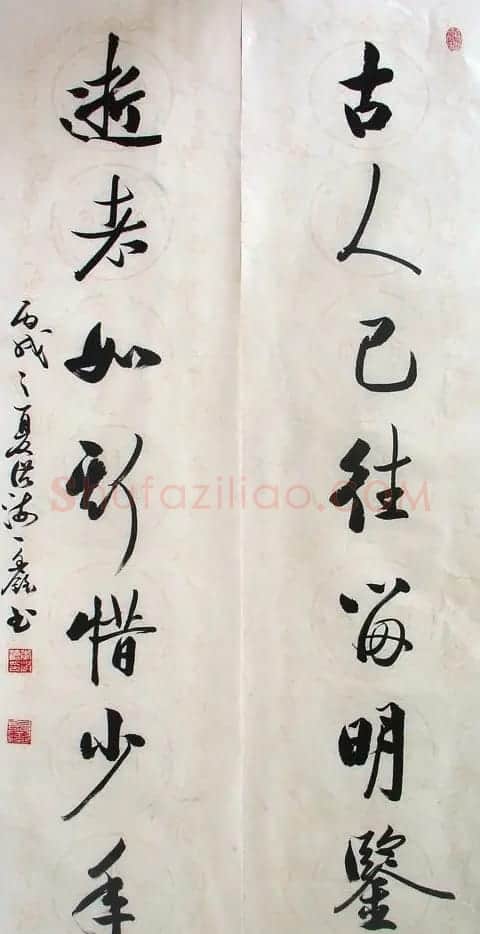 古人已往留明鑒
逝者如斯惜少年
丙戌之夏洪海書
Shufaziliao.COM